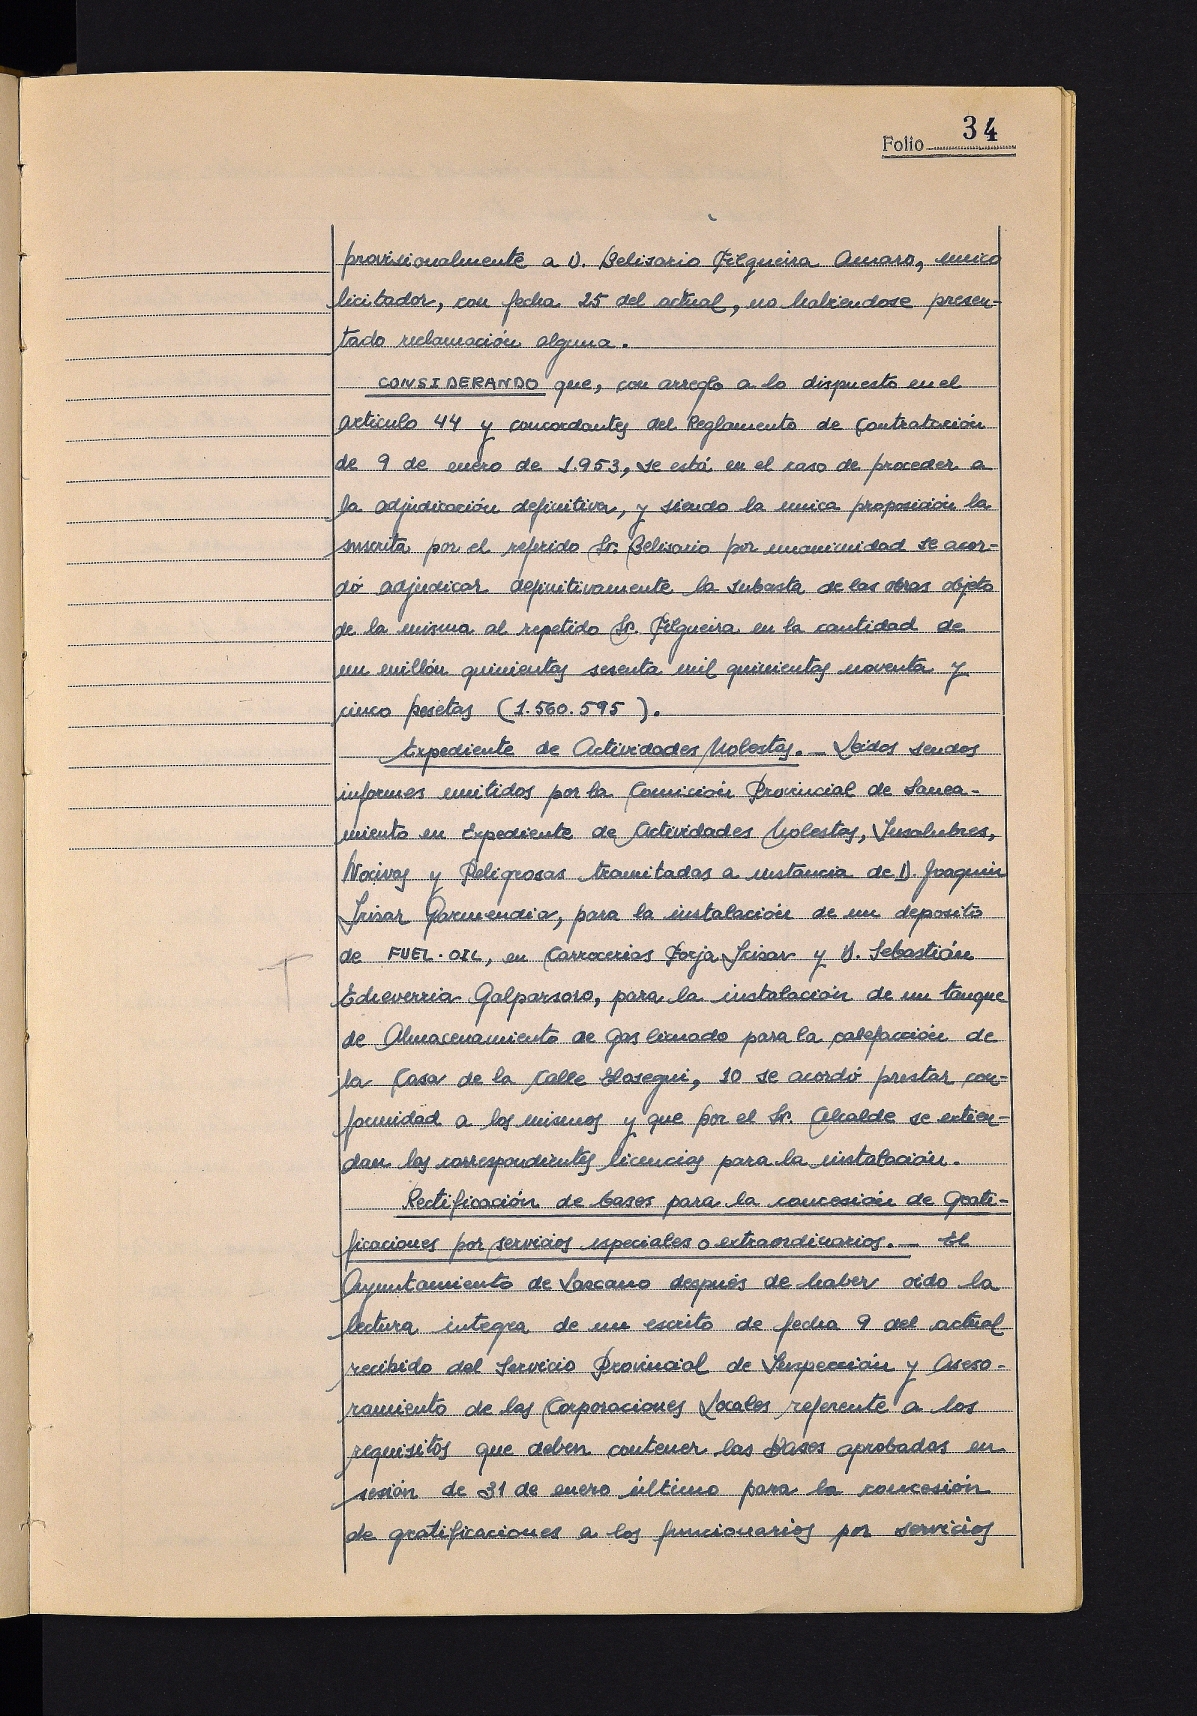 Folio 34
provisionalmente a D. Belisario Filgueira Amaro, unico
licitador, con fecha 25 del actual, no habiendose presen-
tado reclamación alguna.
CONSIDERANDO que, con arreglo a lo dispuesto en el
articulo 44 y concordantes del Reglamento de Contratación
de 9 de enero de 1.953, se está en el caso de proceder a
la adjudicación definitiva, y siendo la unica proposición la
suscrita por el referido Sr. Belisario por unanimidad se acor-
dó adjudicar definitivamente la subasta de las obras objeto
de la misma al repetido Sr. Filgueira en la cantidad de
un millón quinientas sesenta mil quinientas noventa y
cinco pesetas (1.560.595).
Expediente de Actividades Molestas. — Leidos sendos
informes emitidos por la Comisión Provincial de Sanea-
miento en Expediente de Actividades Molestas, Insalubres,
Nocivas y Peligrosas tramitadas a instancia de D. Joaquin
Irizar Garmendia, para la instalación de un deposito
de FUEL-OIL, en Carrocerias Forja Irizar y D. Sebastián
Echeverria Galparsoro, para la instalación de un tanque
de Almacenamiento de gas licuado para la calefacción de
la Casa de la Calle Elosegui, 10 se acordó prestar con-
formidad a los mismos y que por el Sr. Alcalde se extien-
dan las correspondientes licencias para la instalación.
Rectificación de bases para la concesión de Grati-
ficaciones por servicios especiales o extraordinarios. — El
Ayuntamiento de Lazcano después de haber oido la
lectura integra de un escrito de fecha 9 del actual
recibido del Servicio Provincial de Inspección y Aseso-
ramiento de las Corporaciones Locales referente a los
requisitos que deben contener las Bases aprobadas en
sesión de 31 de enero último para la concesión
de gratificaciones a los funcionarios por servicios